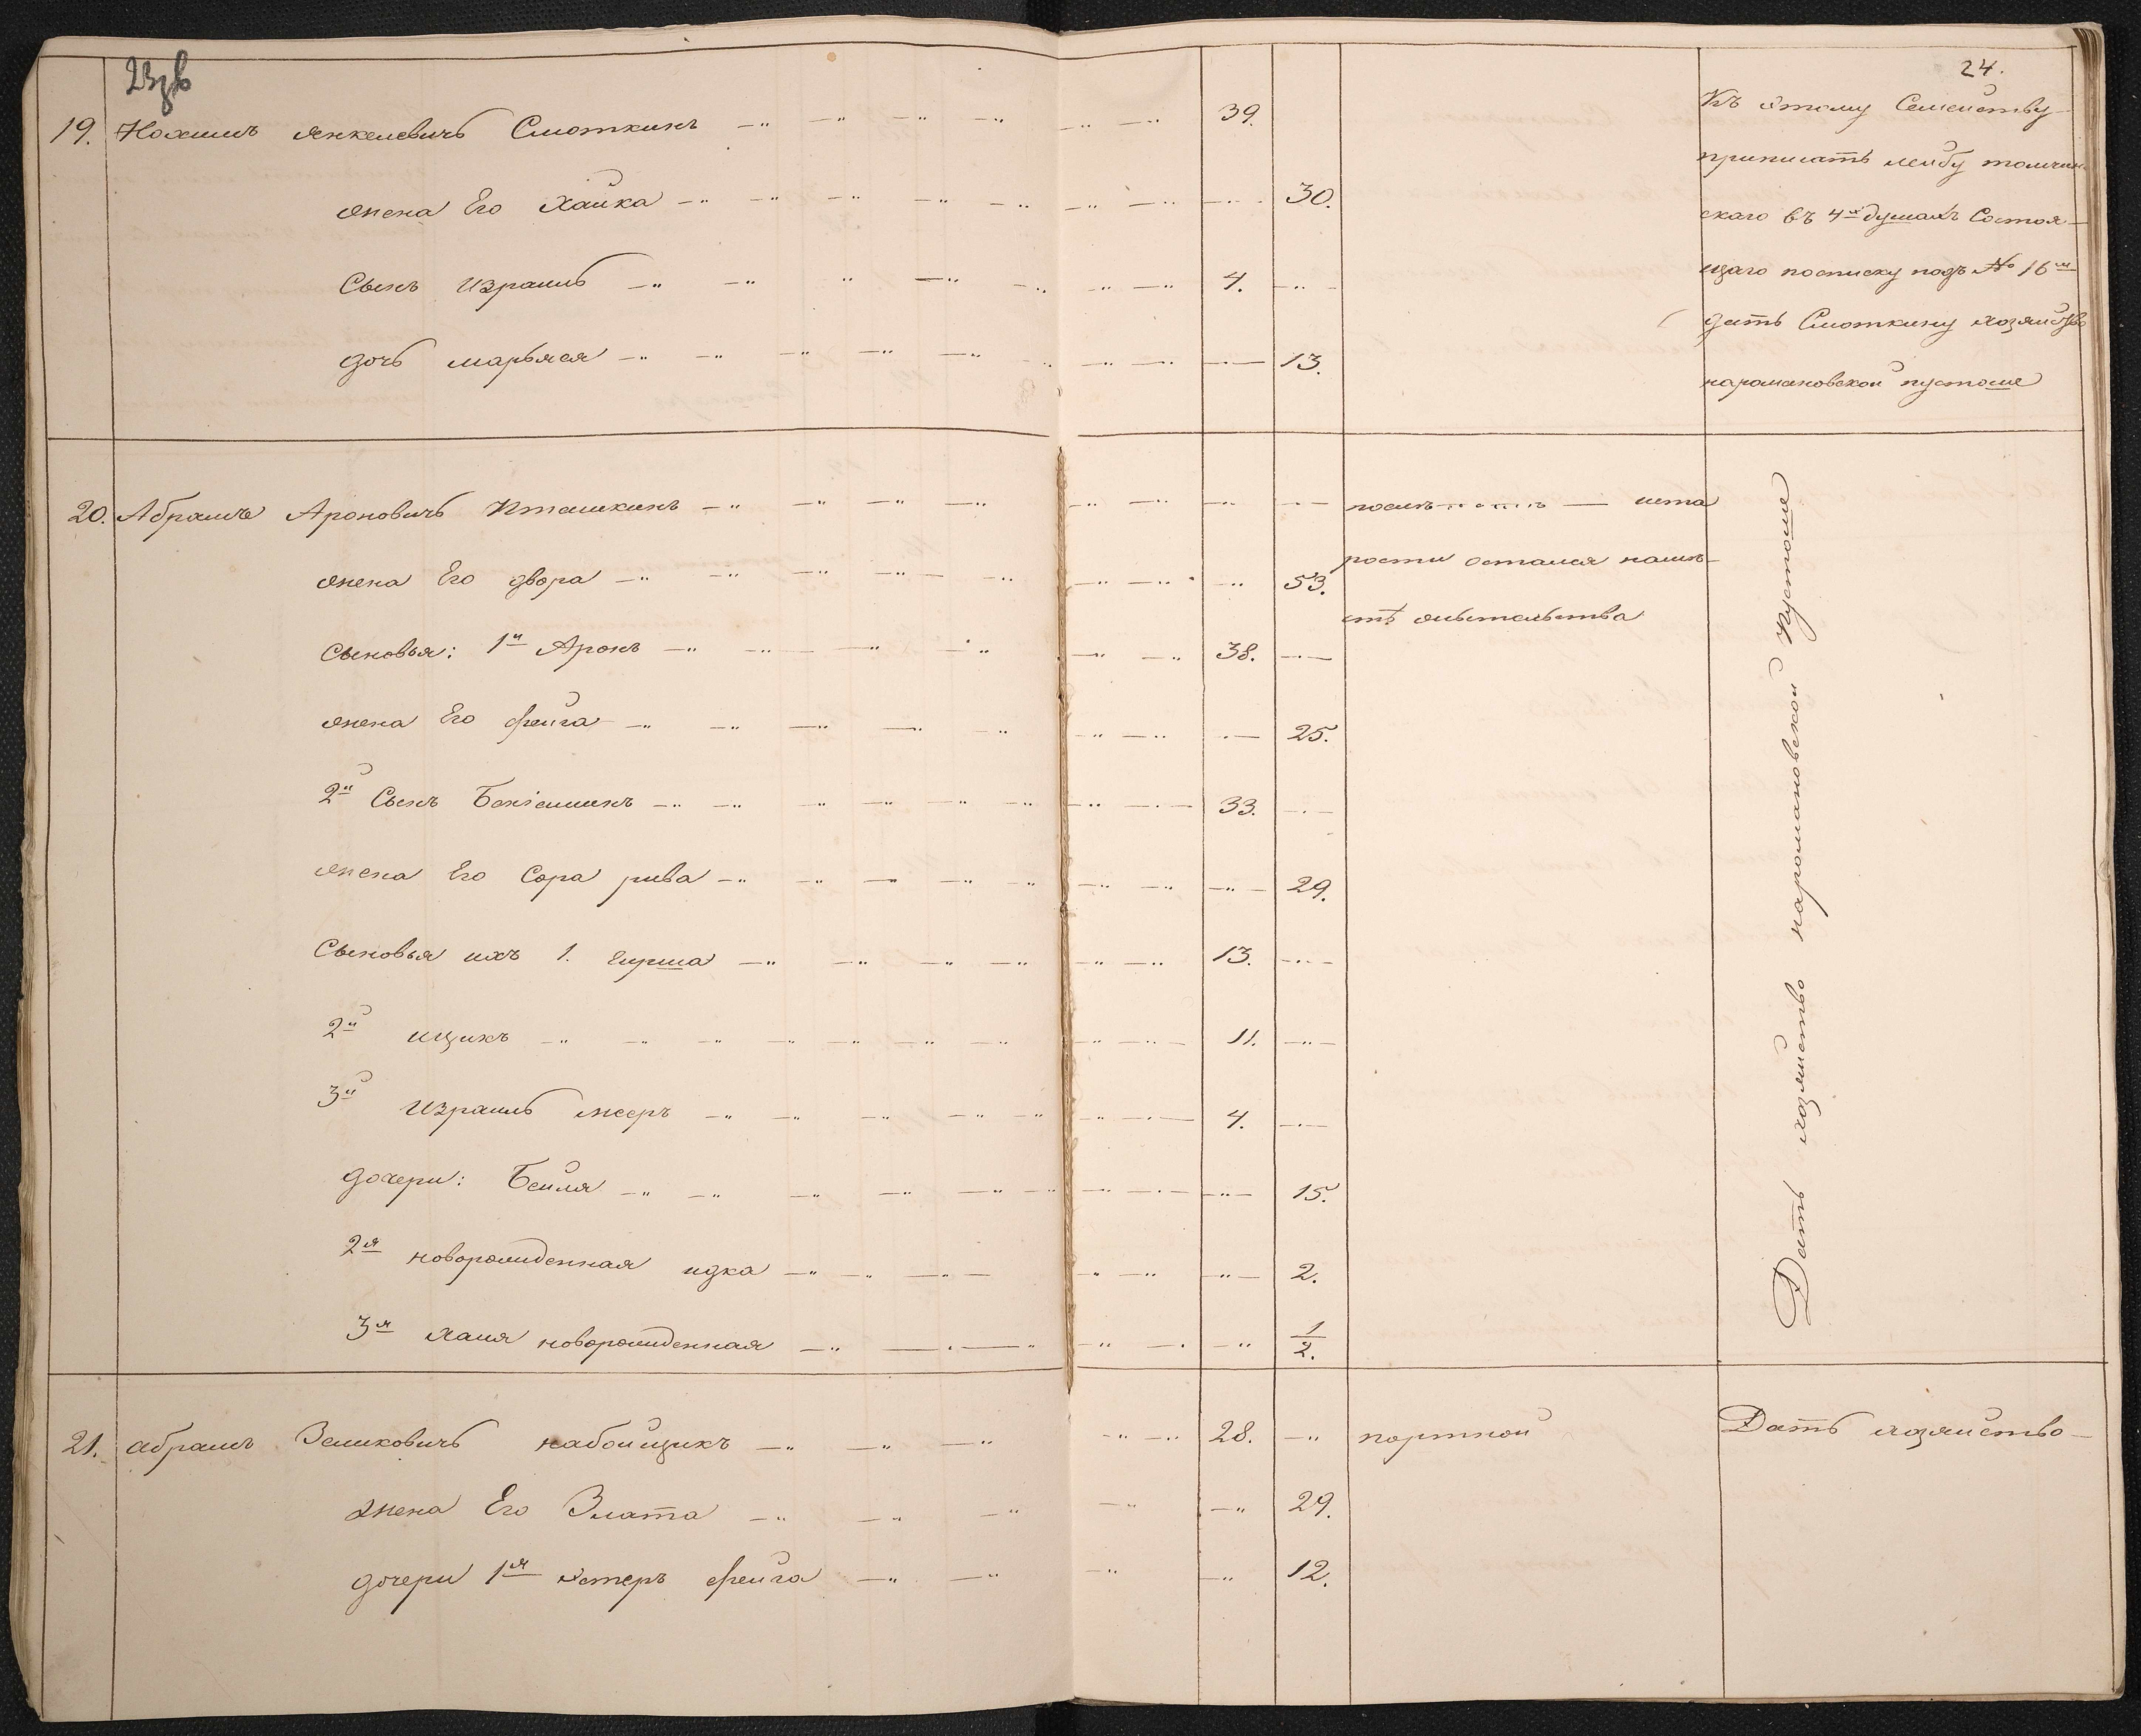 23об
24.
19. Нохимъ Янкелевичъ Смоткинъ 39.
жена Его Хайка 30.
Сынъ Израиль 4.
дочь марьяся 13.
Къ Этому Семейству
приписать лейбу толчин
скаго въ 4хъ душахъ Состоя-
щаго посписку подъ № 16мъ
дать Смоткину хозяйство
наромановской пустоше
20. Абрамъ Ароновичъ Пташкинъ
жена Его двора 53.
Сыновья: 1й Аронъ 38.
жена Его фейга 25.
2й Сынъ Беніаминъ 33.
жена Его Сора рива 29.
Сыновья ихъ 1. гирша 13.
2й ицикъ 11.
3й Израиль мееръ 4.
дочери: Бейля 15.
2я новорожденная идка 2.
3я хаия новорожденная 1/2.
рости остался намѣ-
стѣ жительства
Дать хозяйство наромановской Пустоше
21. абрамъ Зеликовичъ набойщикъ 28. портной Дать хозяйство
жена Его Злата 29.
дочери 1я Эстеръ фейга 12.